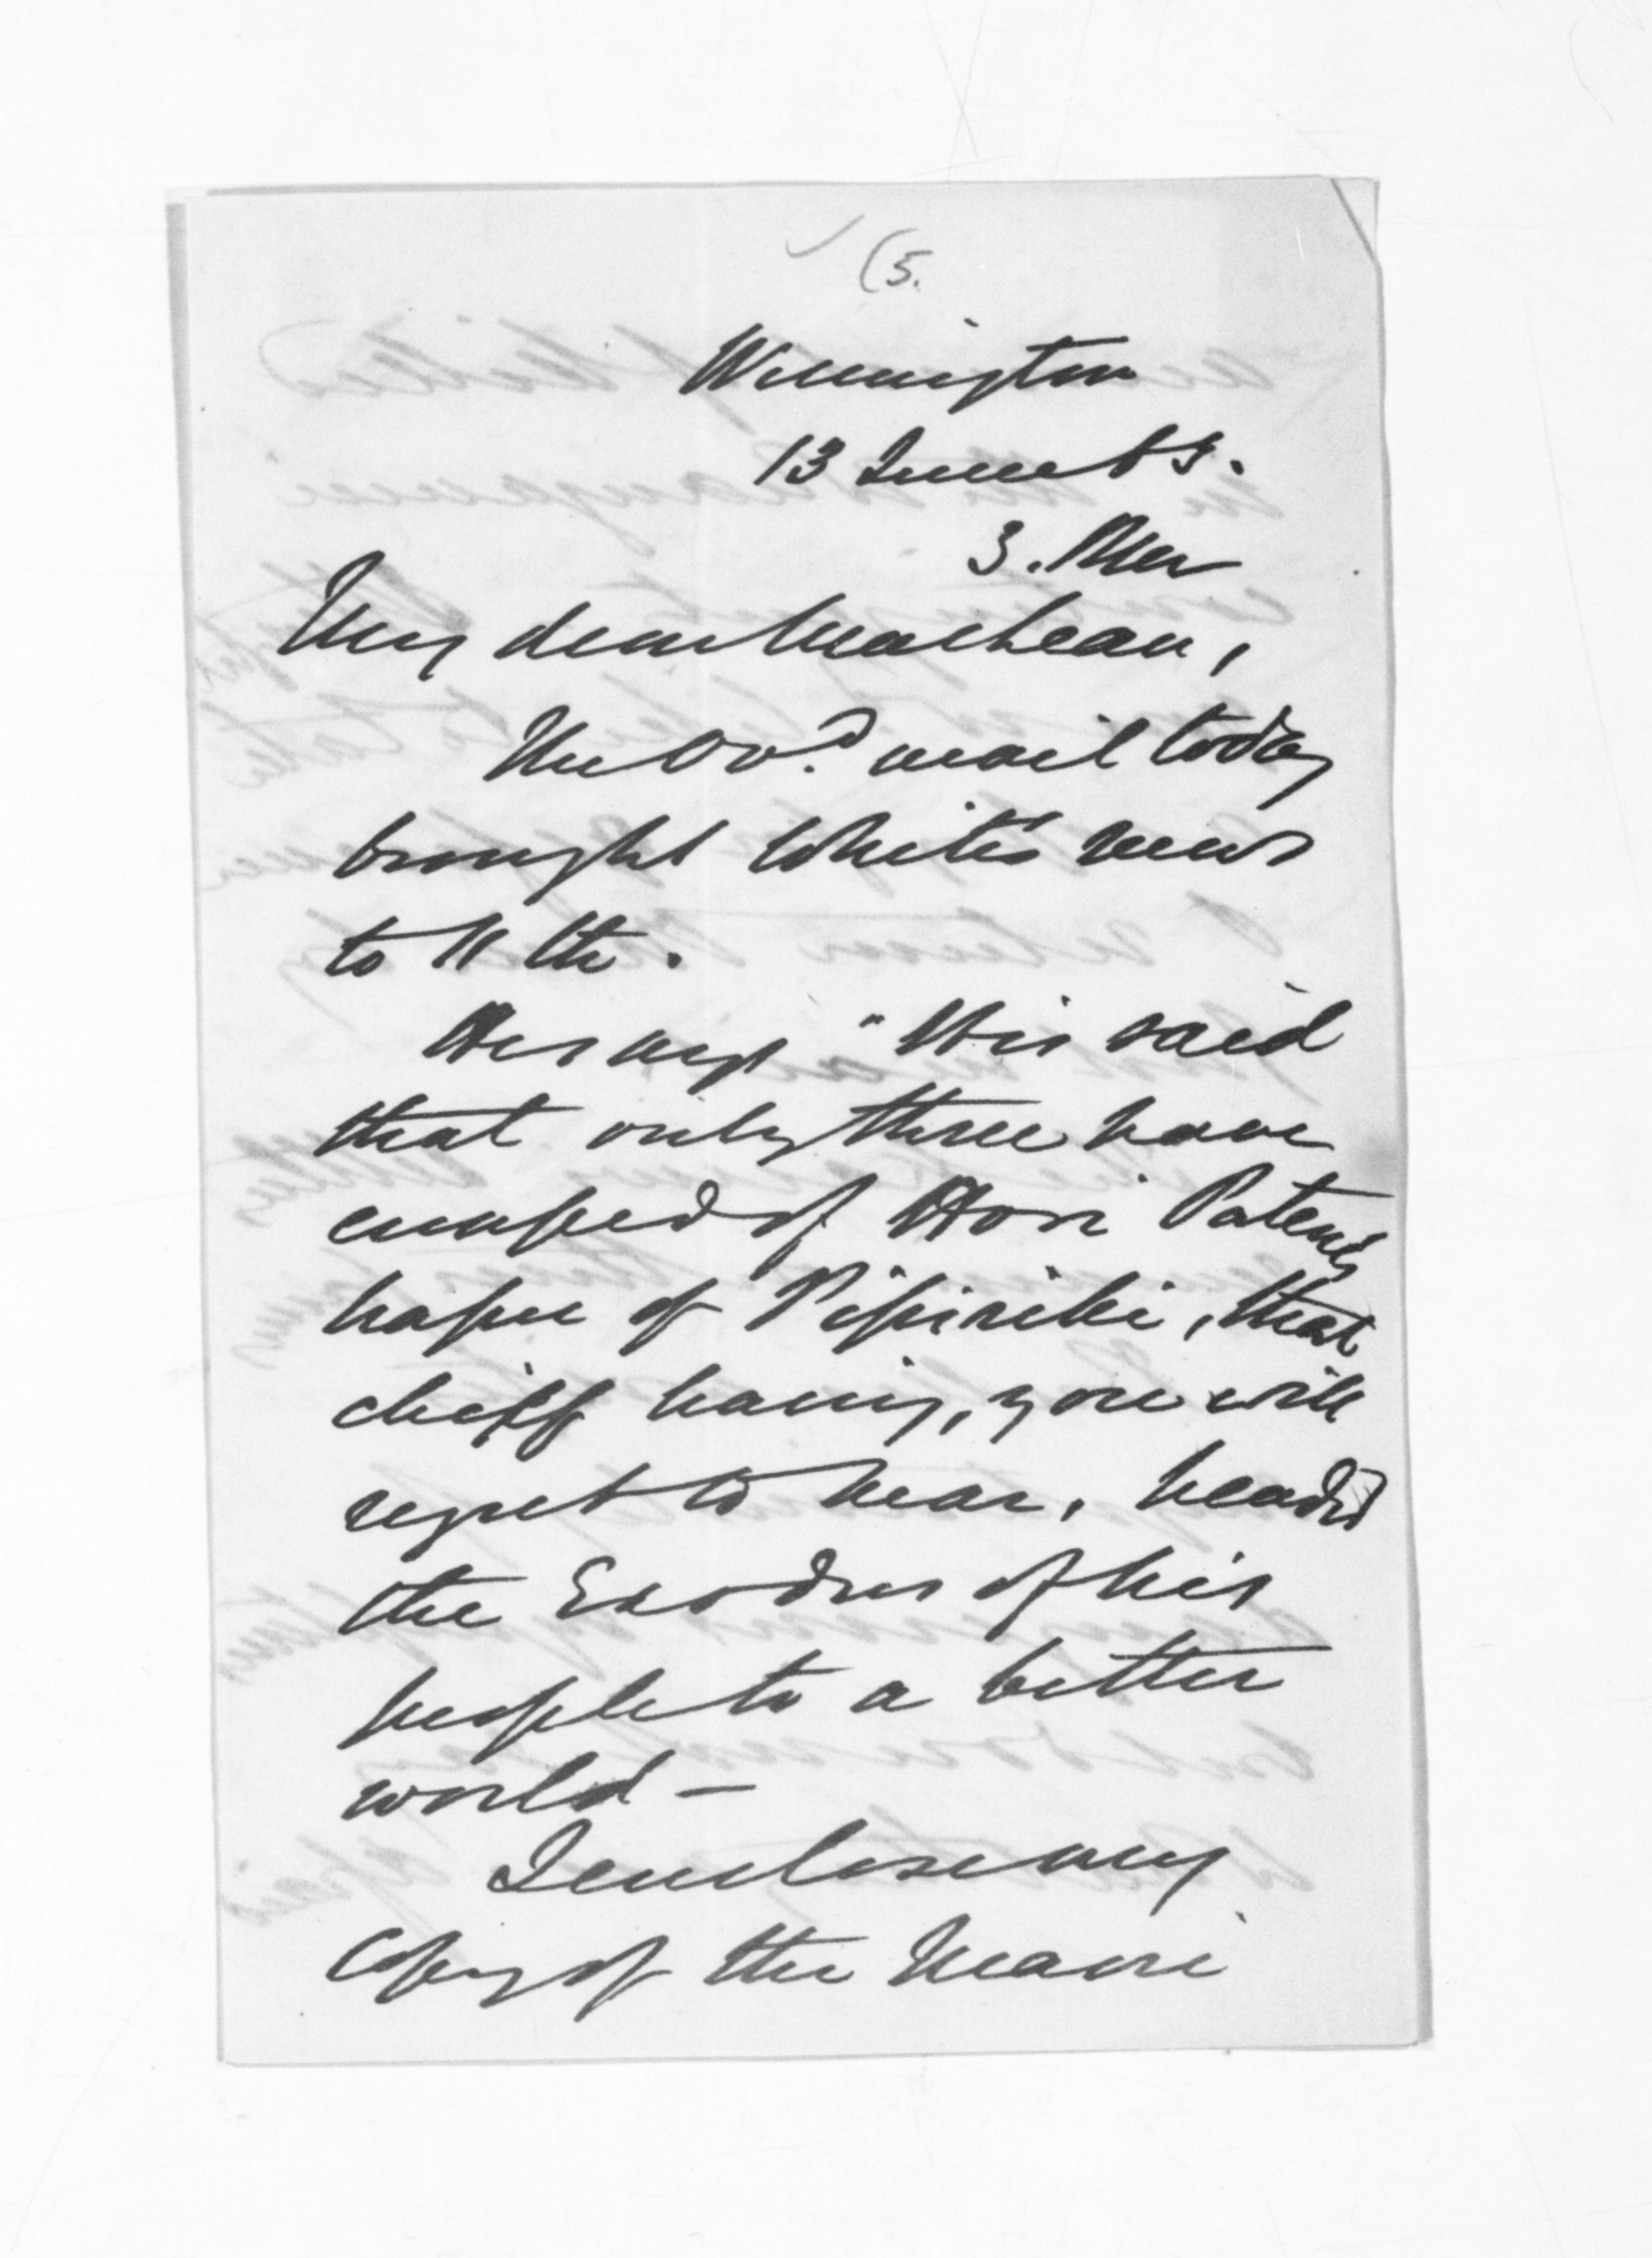 (5.
Wellington
13 June 63.
3. PM
My dear MacLean,
The Ovd. mail today
brought White's news
to 11th.
He says "It is said
that only three have
escaped of Hori Patene's
hapu of Pipiriki, that
chief having, you will
regret to hear, headed
the Exodus of his
people to a better
world —
I enclose my
copy of the Maori